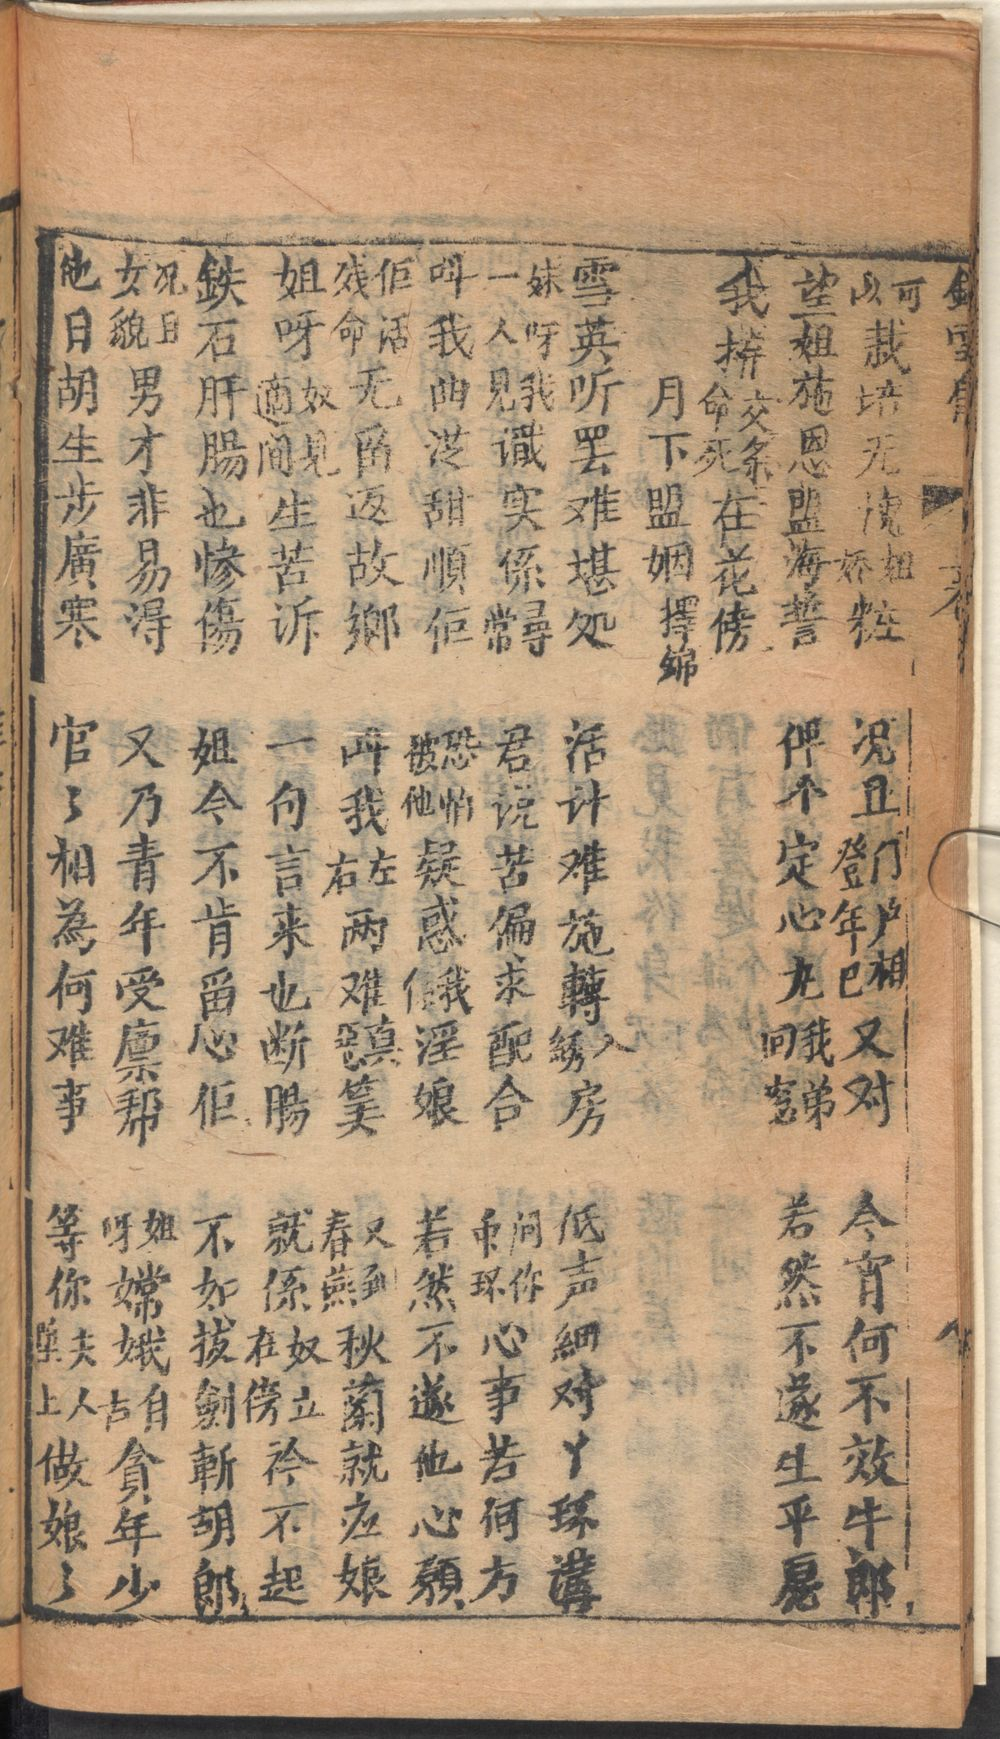 可以栽培无愧姐娇粧
况且门户相登年已又对
今宵何不效牛郎
望姐施恩盟海誓
俾个定心九我弟回窓
若然不遂生平愿
我拚交条命死在花傍
月下盟姻擇錦
雪英听罢难堪处
活计难施轉入绣房
低声細对丫环講
妹呀我一人見识实係尋常
君说苦偏求配合
问你丫环心事若何方
叫我曲从甜順佢
恐怕被他疑惑我淫娘
若然不遂他心願
佢话残命无留返故鄉
叫我左右两难真惡筭
又到春燕秋蘭就应娘
姐呀奴見適間生苦诉
一句言来也断腸
就係奴立在傍衿不起
鉄石肝腸也惨傷
姐今不肯留心佢
不如拔劍斬胡郎
况且女貌男才非易淂
又乃青年受廪帮
姐呀嫦娥自古貪年少
他日胡生步廣寒
官々相為何难事
等你夫人陞上做娘々